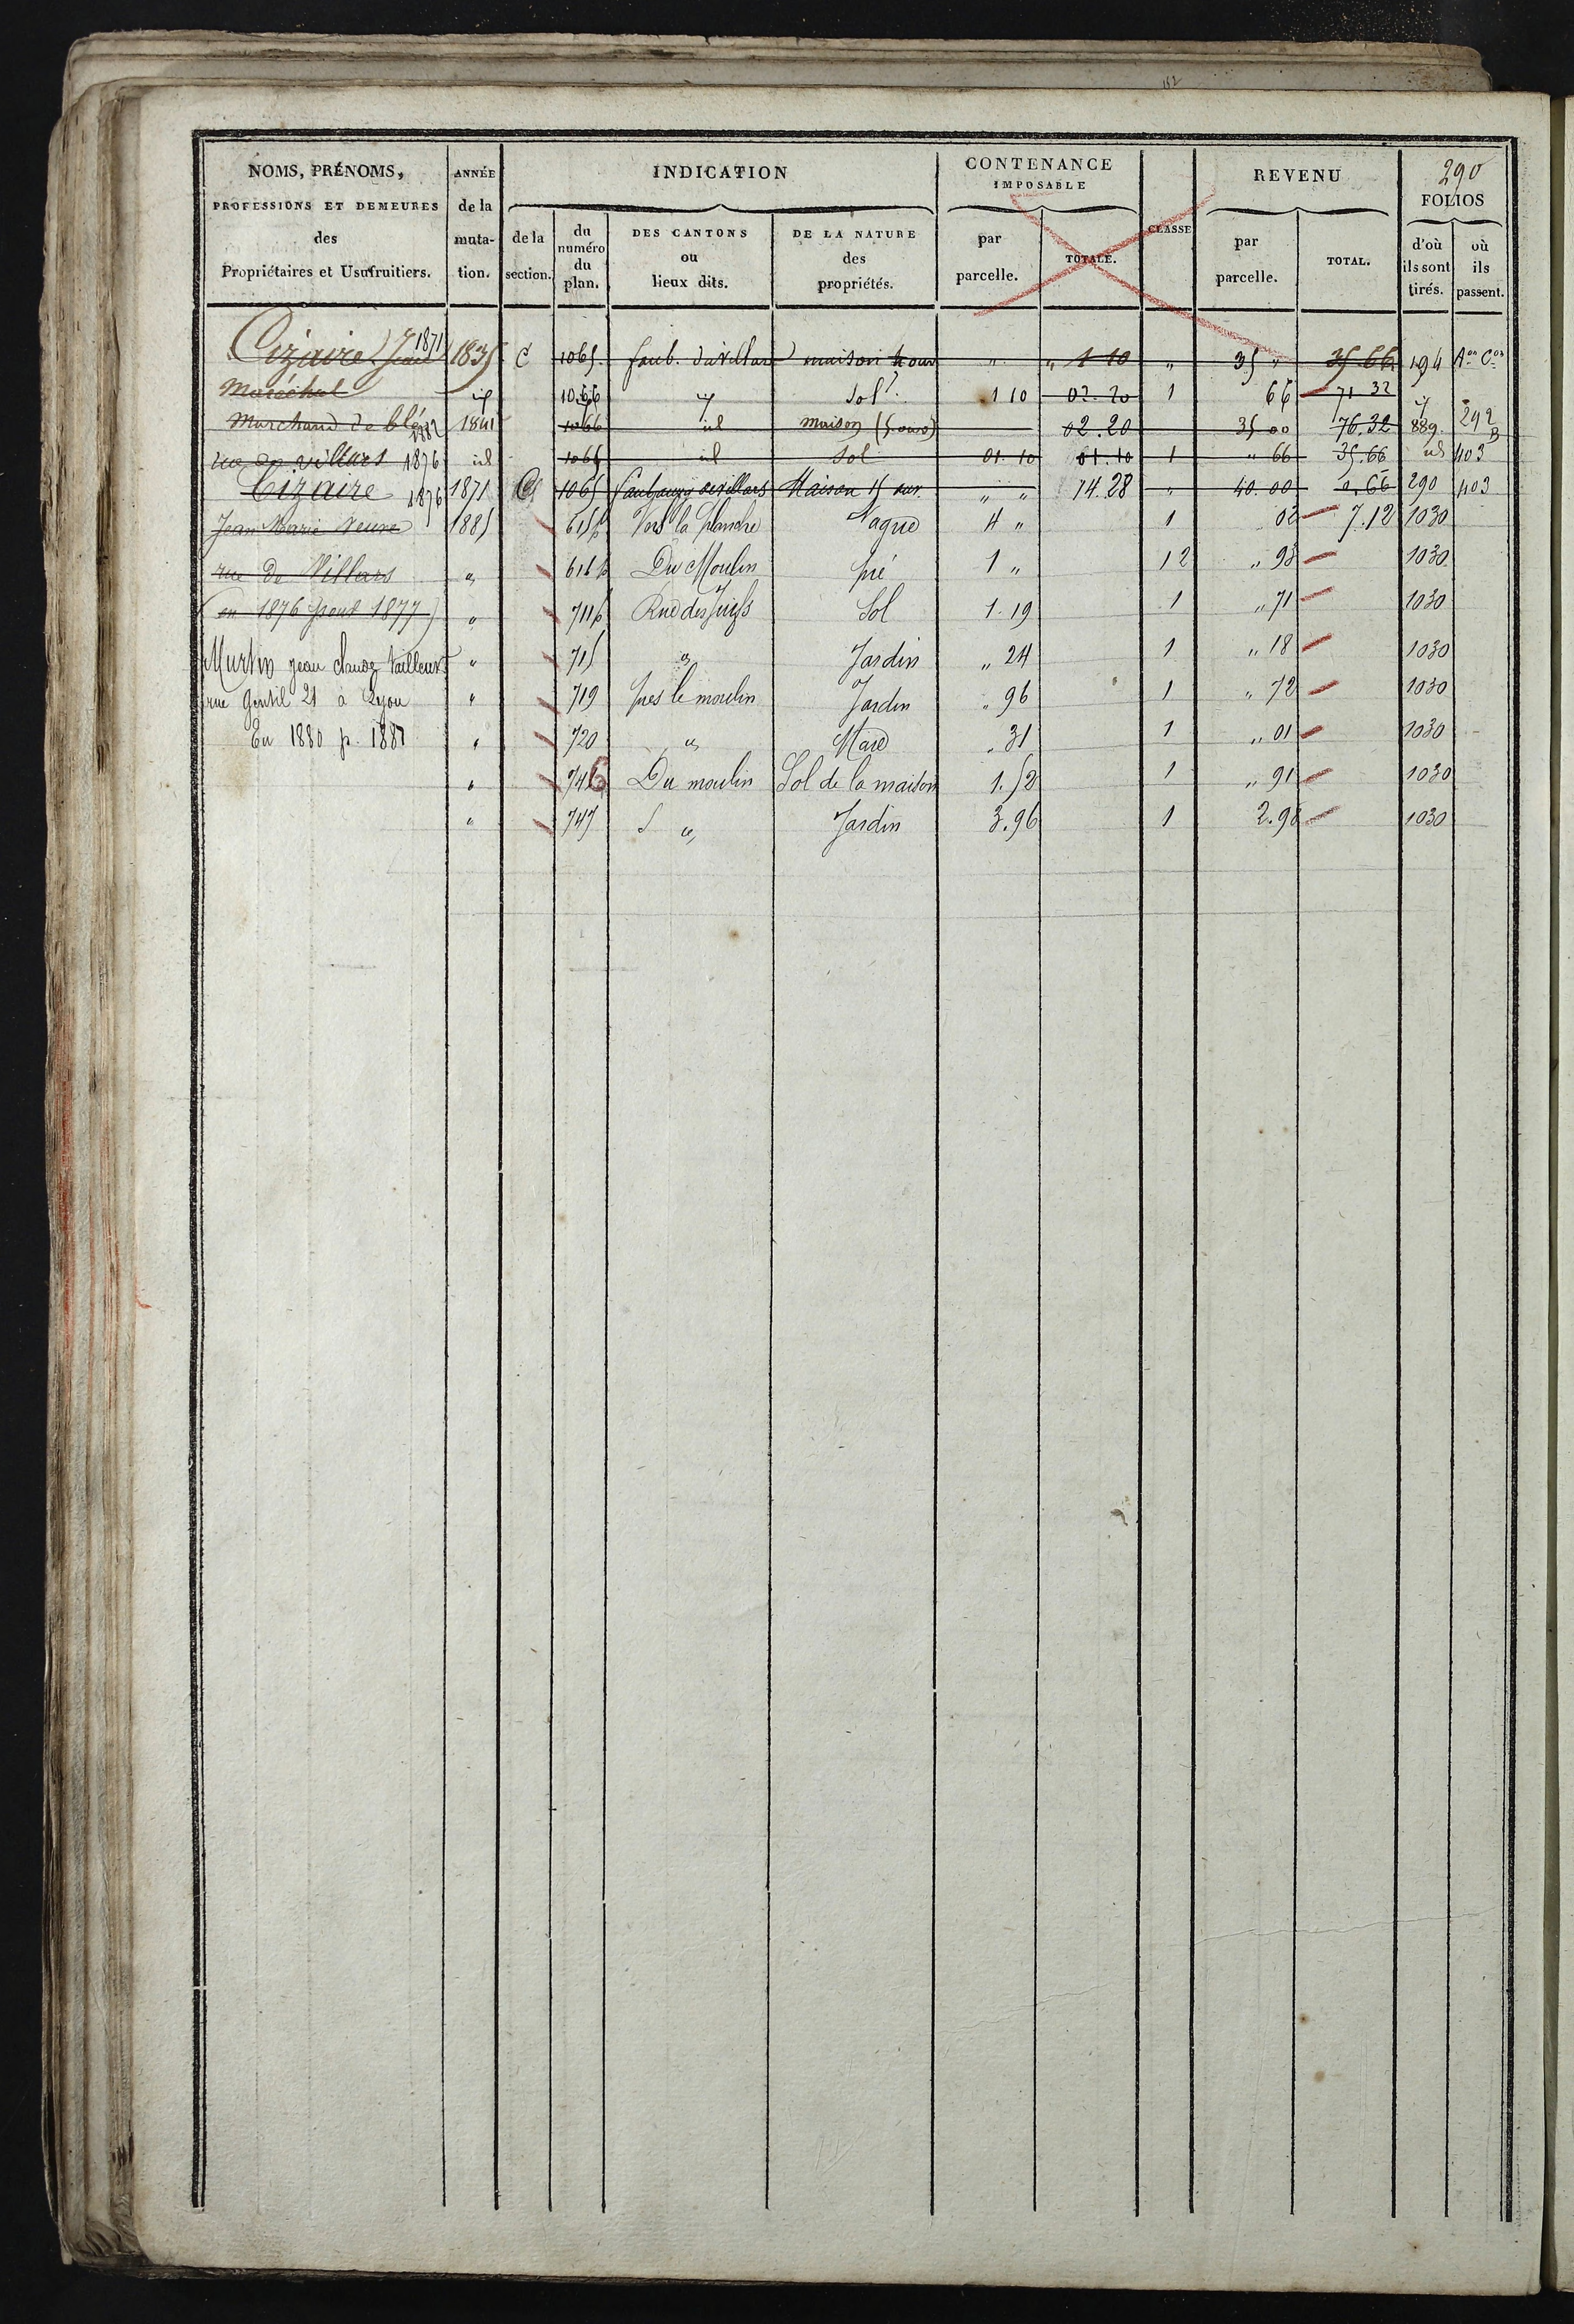 152
NOMS, PRÉNOMS, ANNÉE INDICATION CONTENANCE REVENU 290
PROFESSIONS ET DEMEURES de la IMPOSABLE FOLIOS
des muta- de la du numéro du plan. DES CANTONS DE LA NATURE par TOTALE. CLASSE par TOTAL. d'où ils sont tirés. où ils passent.
Propriétaires et Usufruitiers. tion. section. ou lieux dits. des propriétés. parcelle. parcelle.
Cizaire (Jean 1871 1835 C 1065. faub. du villars maison " " 1 10 " 35 " 35 66 194 Aon Con
Maréchal id 1066 id Sol 1 10 02. 20 1 66 71 32 id
Marchand de blé 1882 1841 1066 id maison (5 ouv) 02. 20 35 00 76. 32 889. 292 B
rue de villars 1876 id 1065 id Sol 01. 10 01. 10 1 " 66 35. 66 id 403
Cizaire 1876 1871 C 1065 faubourg de villars Maison 15 ouv. " " 14. 28 " 40. 00 0. 66 290 403
Jean Marie Veuve 1885 615p Vers la planche Vague 4 " 1 02 7. 12 1030
rue de Villars " 616p Du Moulin pré 1 " 12 " 98 1030
(en 1876 pour 1877) " 711p Rue des Juifs Sol 1. 19 1 " 71 1030
Murtin jean claude tailleur " 715 " Jardin " 24 1 " 18 1030
rue Gentil 21 à Lyon " 719 près le moulin Jardin " 96 1 " 72 1030
En 1880 p. 1881 " 720 " Mare " 31 1 " 01 1030
" 746 Du moulin Sol de la maison 1. 52 1 " 91 1030
" 747 " Jardin 3. 96 1 2. 98 1030